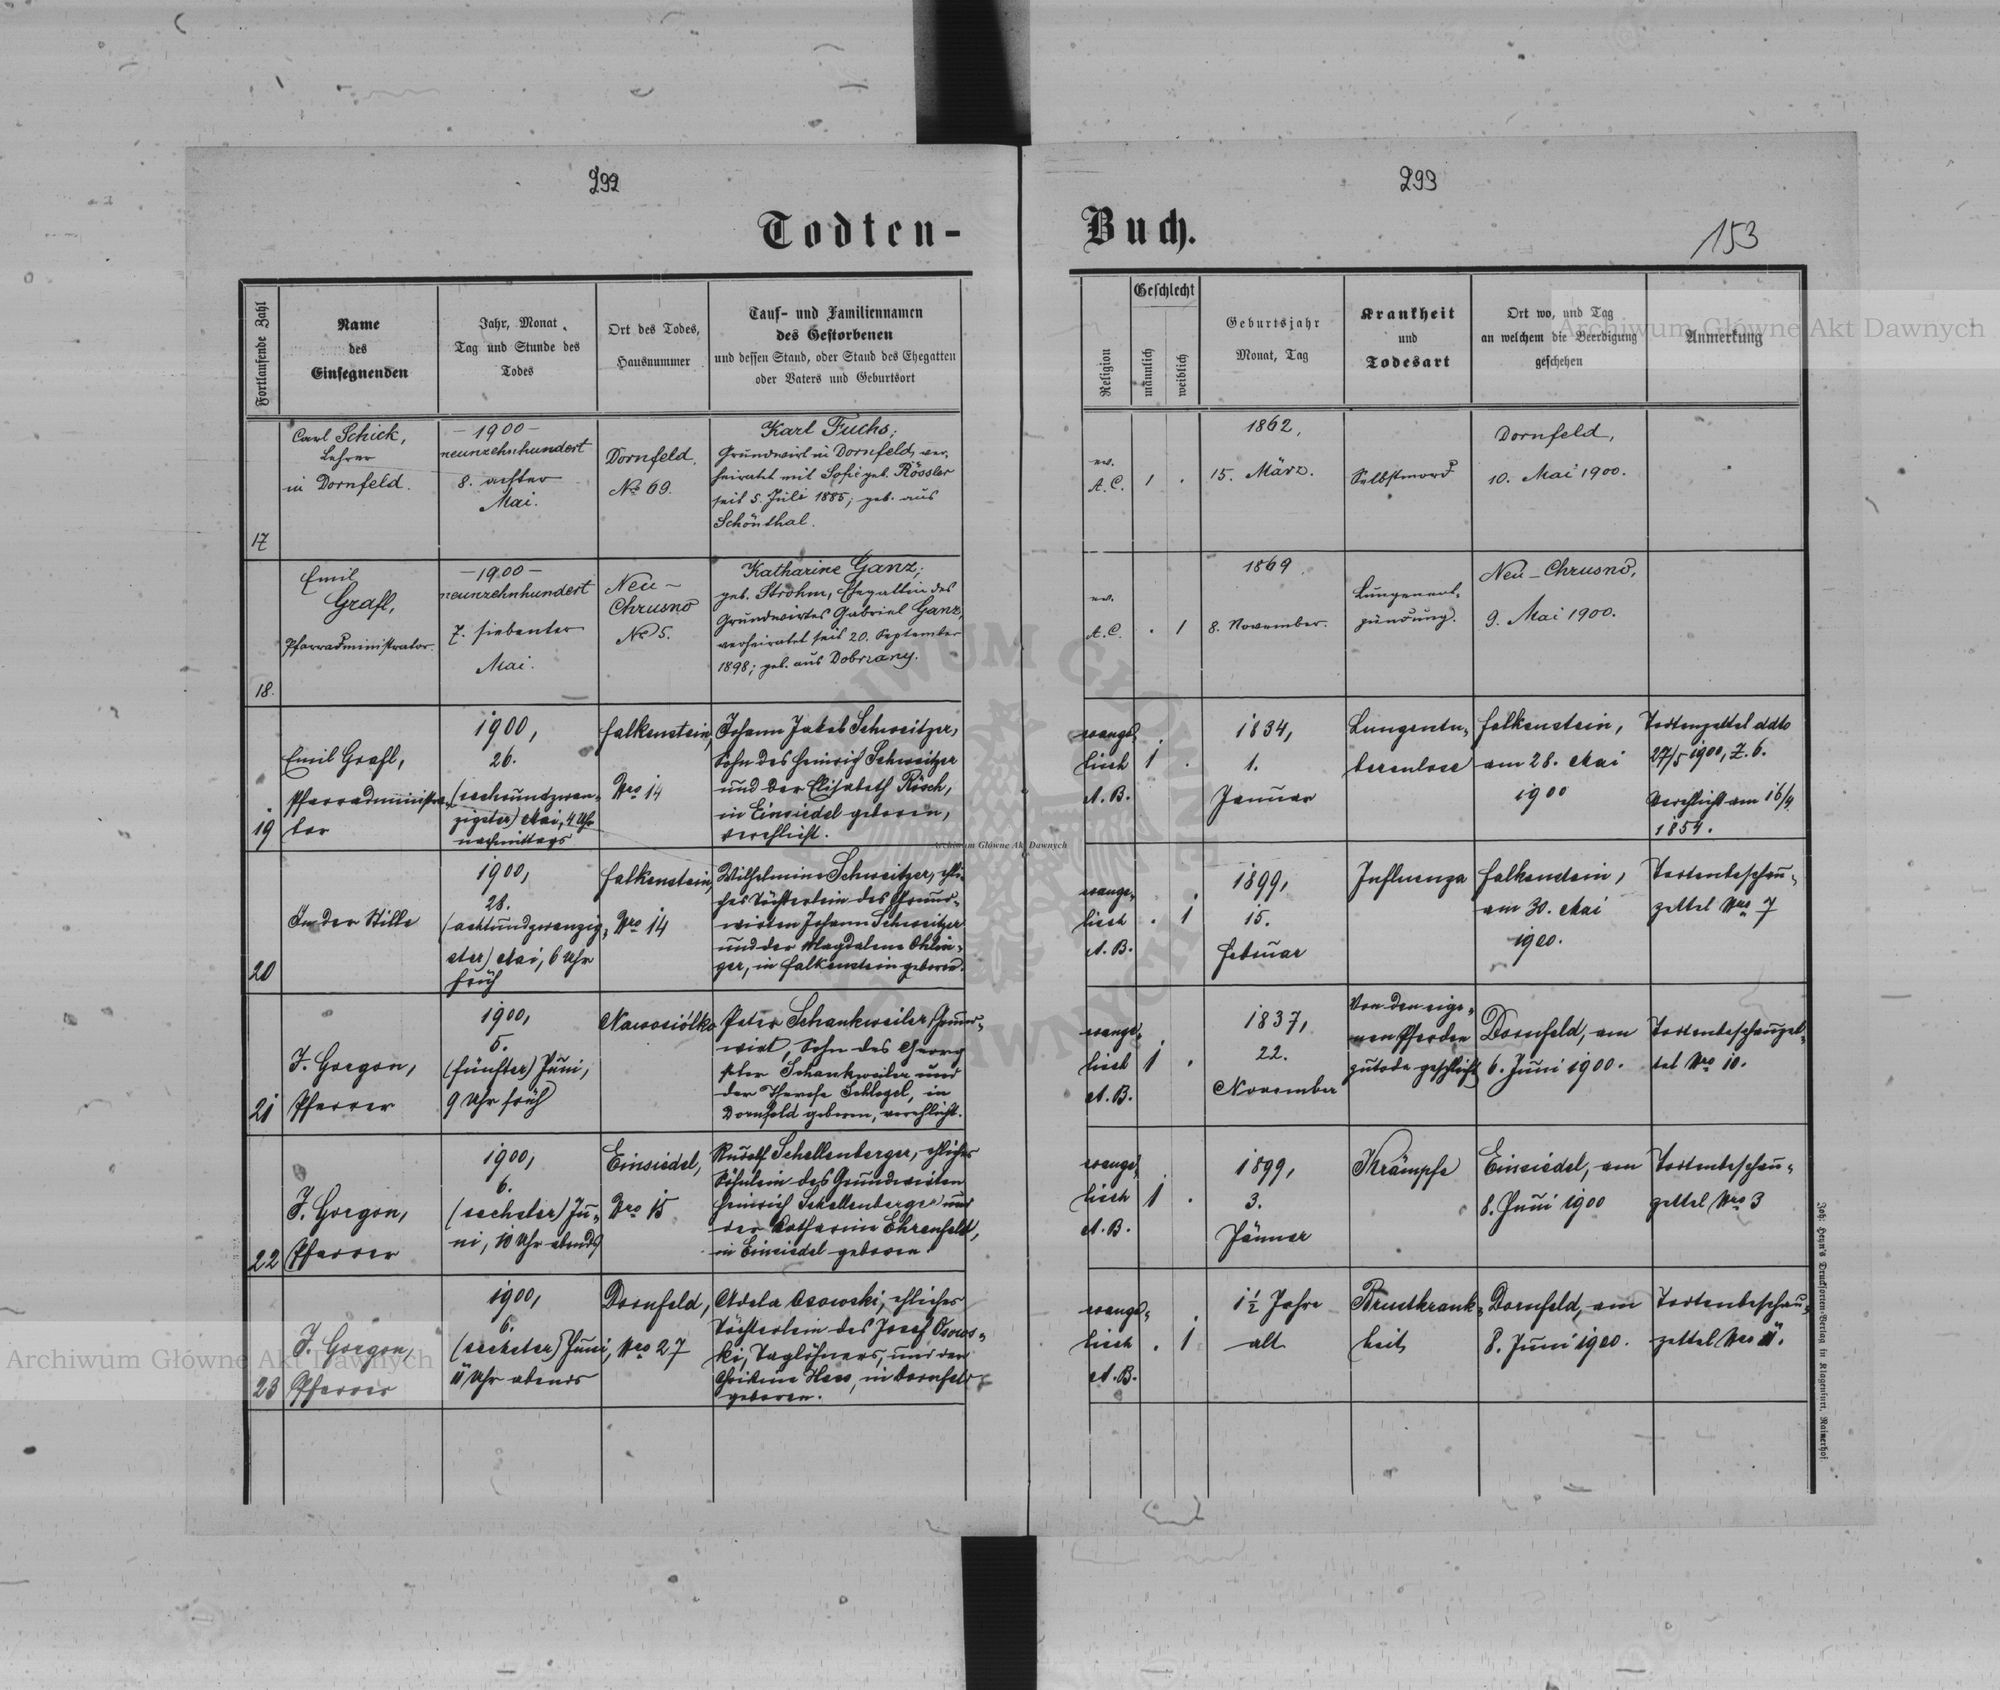 292
293
Todten-
Buch.
153
Fortlaufende Zahl
Name
des
Einsegnenden
Jahr, Monat
Tag und Stunde des
Todes
Ort des Todes,
Hausnummer
Tauf- und Familiennamen
des Gestorbenen
und dessen Stand, oder Stand des Ehegatten
oder Vaters und Geburtsort
Religion
Geschlecht
männlich
weiblich
Geburtsjahr
Monat, Tag
Krankheit
und
Todesart
Ort wo, und Tag
an welchem die Beerdigung
geschehen
Anmerkung
Archiwum Główne Akt Dawnych
17
Carl Schick,
Lehrer
in Dornfeld.
- 1900 -
neunzehnhundert
8. achter
Mai.
Dornfeld.
No 69.
Karl Fuchs;
Grundwirt in Dornfeld, ver-
heiratet mit Sofie geb. Rössler
seit 5. Juli 1885; geb. aus
Schönthal.
ev.
A. C.
1
.
1862,
15. März.
Selbstmord
Dornfeld,
10. Mai 1900.
18.
Emil
Grafl,
Pfarradministrator.
- 1900 -
neunzehnhundert
7. siebenter
Mai.
Neu-
Chrusno
No 5.
Katharine Ganz;
geb. Strohm, Ehegattin des
Grundwirtes Gabriel Ganz,
verheiratet seit 20. September
1898; geb. aus Dobrzany.
ev.
A. C.
.
1
1869.
8. November.
Lungenent-
zündung.
Neu-Chrusno,
9. Mai 1900.
19
Emil Grafl,
Pfarradministra-
tor
1900,
26.
(sechsundzwan-
zigster) Mai, 4 Uhr
nachmittags
Falkenstein,
Nro 14
Johann Jakob Schweitzer,
Sohn des Heinrich Schweitzer
und der Elisabeth Rösch,
in Einsiedel geboren,
verehlicht.
evange-
lisch
A. B.
1
.
1834,
1.
Januar
Lungentu-
berculose
Falkenstein,
am 28. Mai
1900
Todtenzettel ddto
27/5 1900, Z. 6.
Verehlicht am 16/9
1854.
20
In der Stille
1900,
28.
(achtundzwanzig-
ster) Mai, 6 Uhr
früh
Falkenstein,
Nro 14
Wilhelmine Schweitzer, ehli-
ches Töchterlein des Grund-
wirten Johann Schweitzer
und der Magdalena Ohlin-
ger, in Falkenstein geboren.
evange-
lisch
A. B.
.
1
1899,
15.
Februar
Influenza
Falkenstein,
am 30. Mai
1900.
Todtenbeschau-
zettel Nro 7
21
J. Gorgon,
Pfarrer
1900,
5.
(fünfter) Juni,
9 Uhr früh
Nawosiólka
Peter Schankweiler, Grund-
wirt, Sohn des Georg
Peter Schankweiler und
der Therese Schlegel, in
Dornfeld geboren, verehlicht.
evange-
lisch
A. B.
1
.
1837,
22.
November
Von den eige-
nen Pferden
zutode geschleift
Dornfeld, am
6. Juni 1900.
Todtenbeschauzet-
tel Nro 10.
22
J. Gorgon,
Pfarrer
1900,
6.
(sechster) Ju-
ni, 10 Uhr abends
Einsiedel,
Nro 15
Rudolf Schellenberger, ehliches
Söhnlein des Grundwirten
Heinrich Schellenberger und
der Katharine Ehrenfeld,
in Einsiedel geboren.
evange-
lisch
A. B.
1
.
1899,
3.
Jänner
Krämpfe
Einsiedel, am
8. Juni 1900
Todtenbeschau-
zettel Nro 3
23
J. Gorgon,
Pfarrer
1900,
6.
(sechster) Juni,
11 Uhr abends
Dornfeld,
Nro 27
Adela Osowski, ehliches
Töchterlein des Josef Osows-
ki, Taglöhners, und der
Christine Hess, in Dornfeld
geboren.
evange-
lisch
A. B.
.
1
1 1/2 Jahre
alt
Brustkrank-
heit
Dornfeld, am
8. Juni 1900.
Todtenbeschau-
zettel Nro 11.
Joh. Heyn's Drucksorten-Verlag in Klagenfurt, Rainerhof
Archiwum Główne Akt Dawnych
Archiwum Główne Akt Dawnych